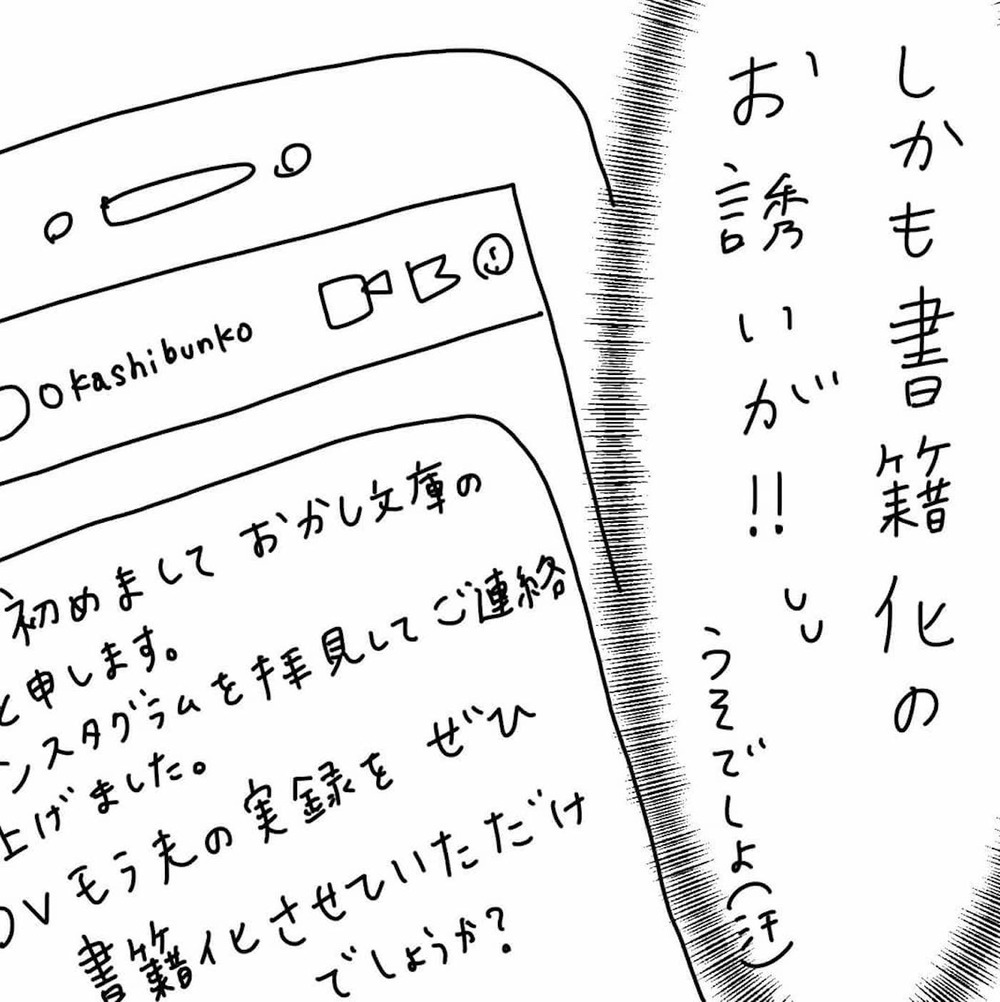 しかも書籍化の
お誘いが!!
うそでしょ(汗)
okashibunko
初めまして おかし文庫の
と申します。
ンスタグラムを拝見してご連絡
上げました。
DVモラ夫の実録を ぜひ
書籍化させていただけ
でしょうか?